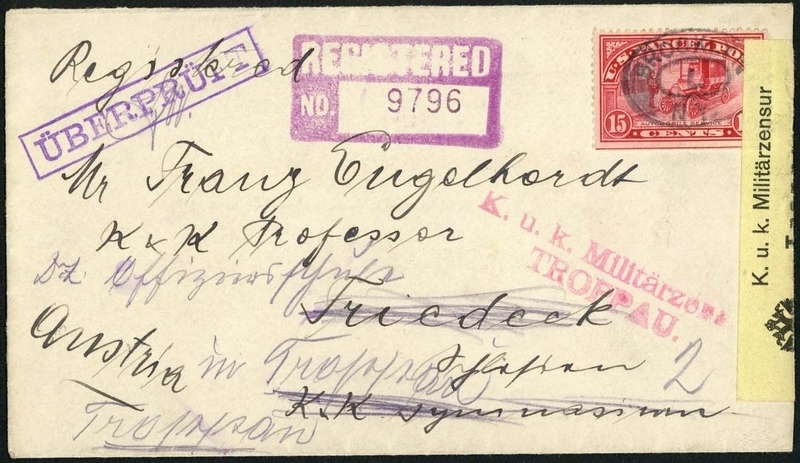 Registered
ÜBERPRÜFT
REGISTERED
NO. 9796
U.S. PARCEL POST
AUTOMOBILE SERVICE
15
CENTS
Mr Franz Engelhardt
K u K Professor
Dz. Offiziersschule
Friedeck
Austria in Troppau
Schlesien 2
K.K Gymnasium
Troppau
K. u. k. Militärzens
TROPPAU.
K. u. k. Militärzensur